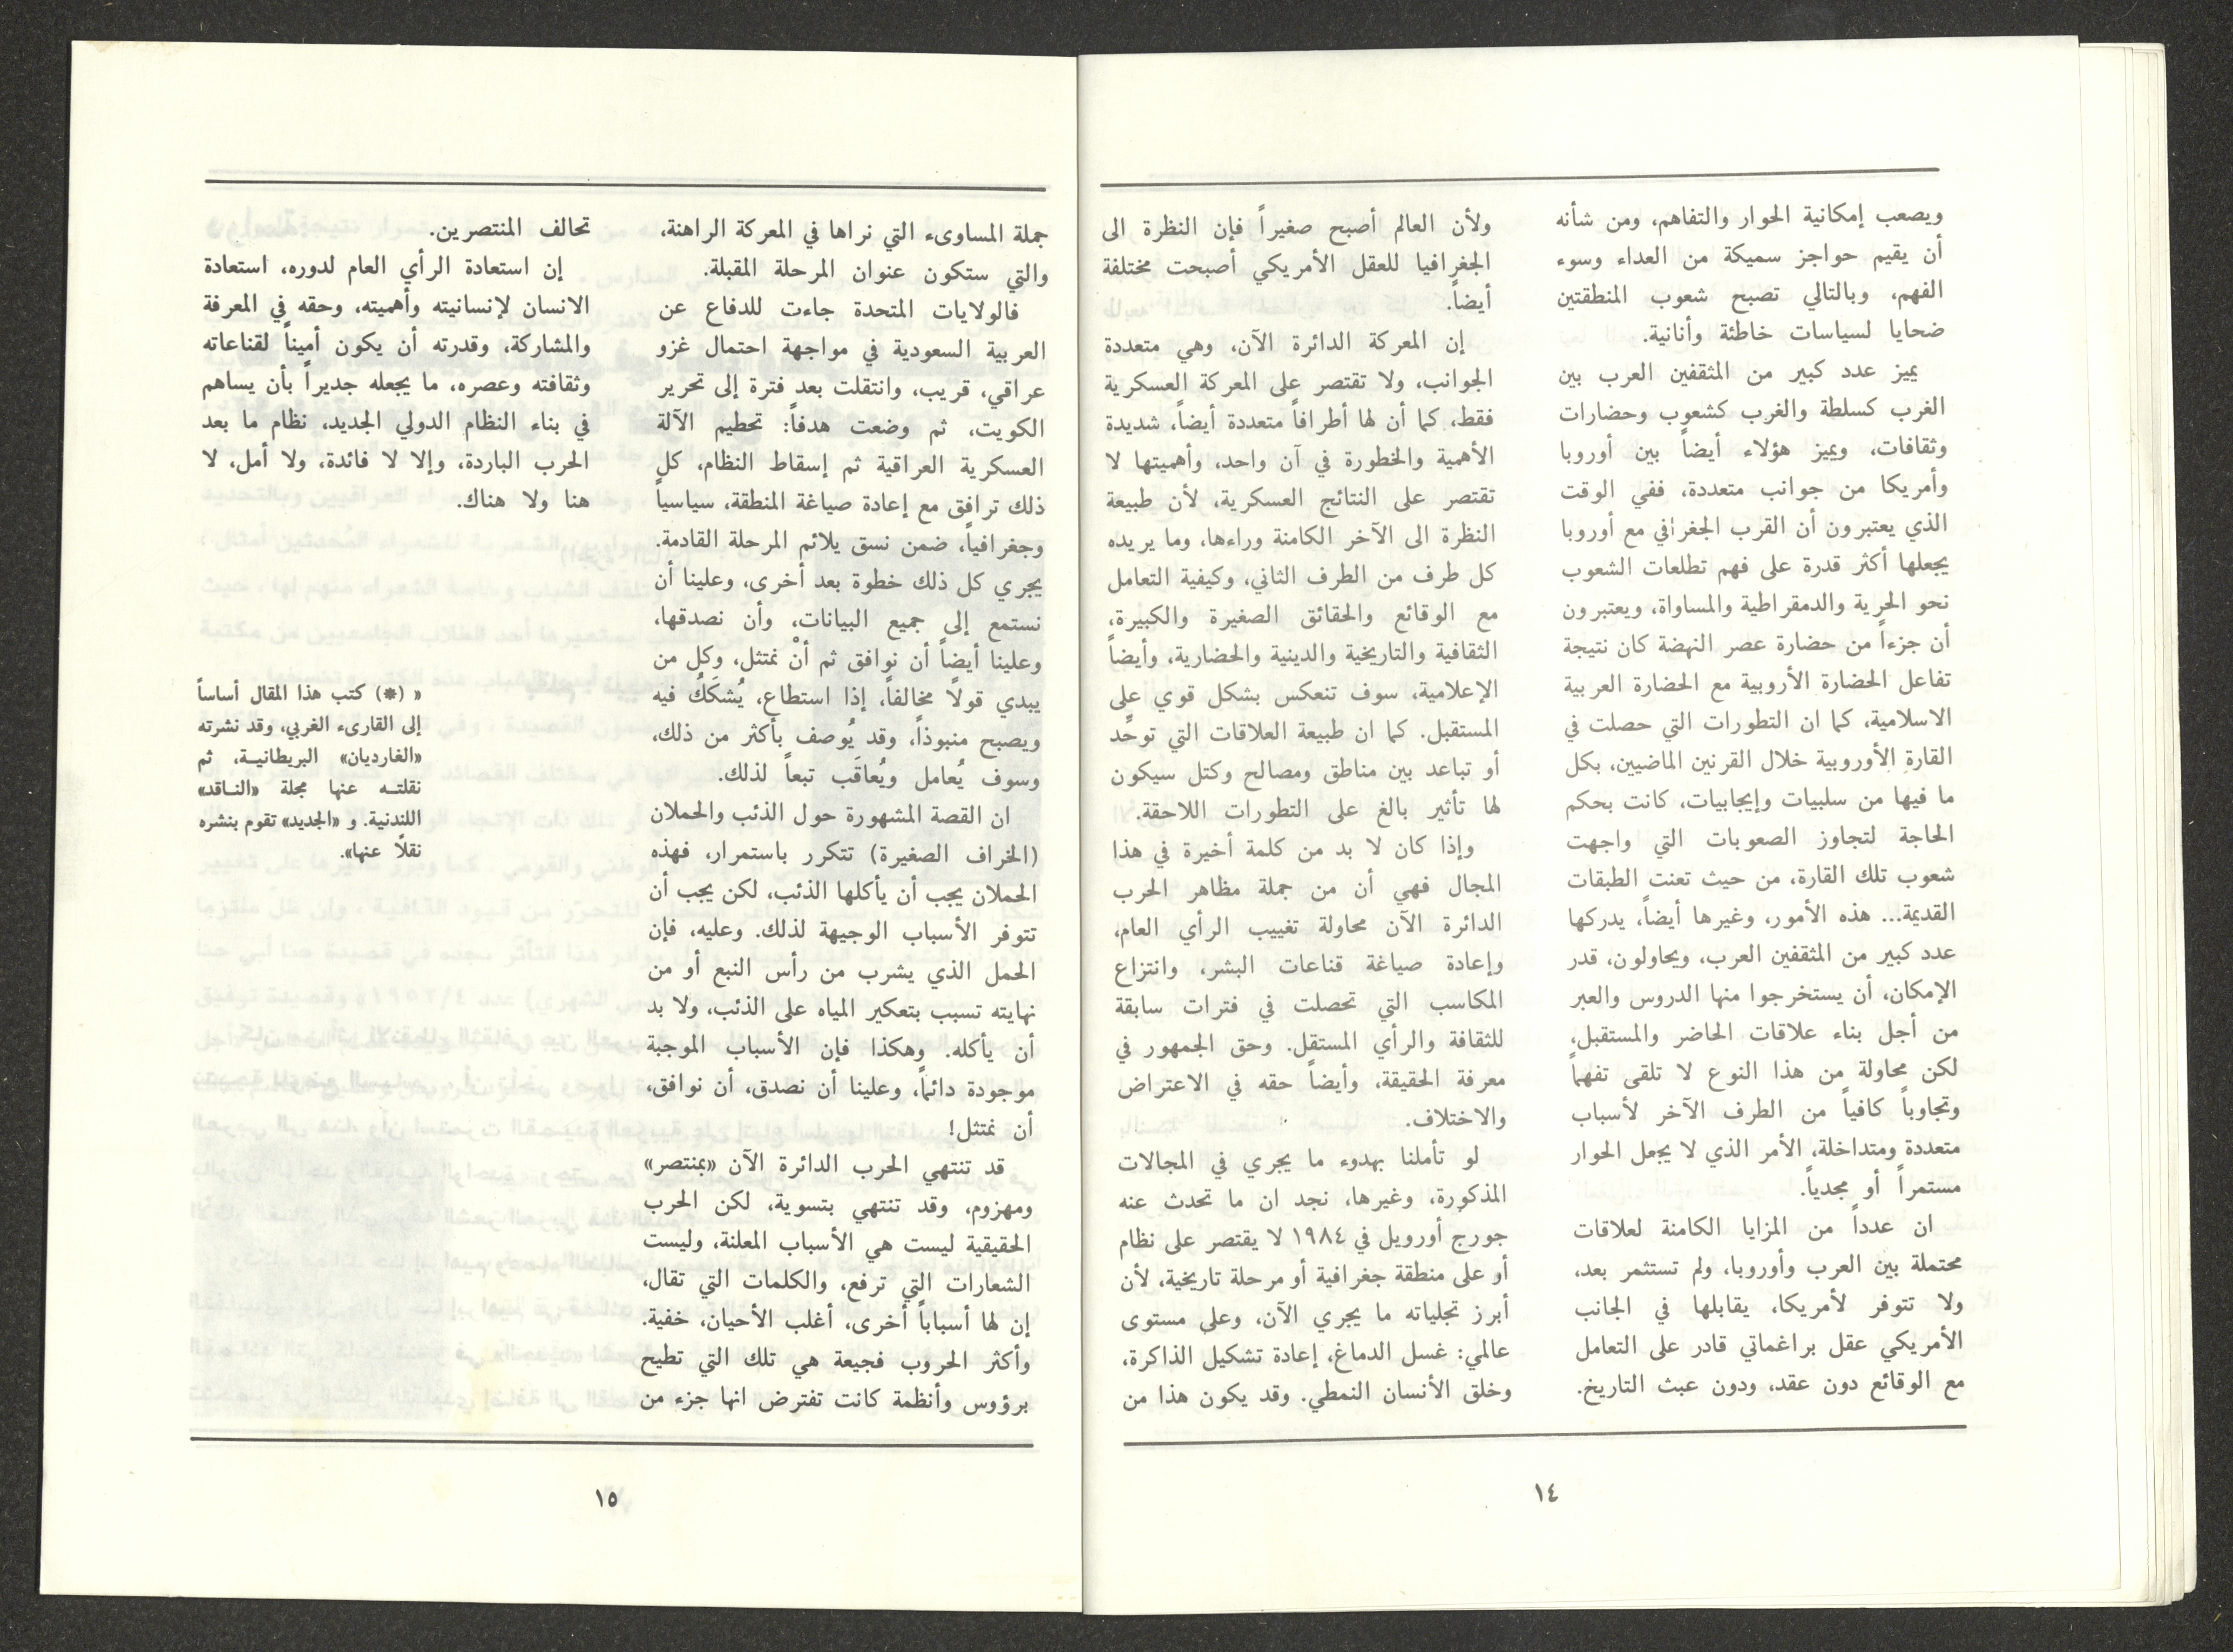 ويصعب إمكانية الحوار والتفاهم، ومن شأنه
أن يقيم حواجز سميكة من العداء وسوء
الفهم، وبالتالي تصبح شعوب المنطقتين
ضحايا لسياسات خاطئة وأنانية.
يميز عدد كبير من المثقفين العرب بين
الغرب كسلطة والغرب كشعوب وحضارات
وثقافات، ويميز هؤلاء أيضاً بين أوروبا
وأمريكا من جوانب متعددة، ففي الوقت
الذي يعتبرون أن القرب الجغرافي مع أوروبا
يجعلها أكثر قدرة على فهم تطلعات الشعوب
نحو الحرية والدمقراطية والمساواة، ويعتبرون
أن جزءاً من حضارة عصر النهضة كان نتيجة
تفاعل الحضارة الأروبية مع الحضارة العربية
الاسلامية، كما ان التطورات التي حصلت في
القارة الأوروبية خلال القرنين الماضيين، بكل
ما فيها من سلبيات وإيجابيات، كانت بحكم
الحاجة لتجاوز الصعوبات التي واجهت
شعوب تلك القارة، من حيث تعنت الطبقات
القديمة... هذه الأمور، وغيرها أيضاً، يدركها
عدد كبير من المثقفين العرب، ويحاولون، قدر
الإمكان، أن يستخرجوا منها الدروس والعبر
من أجل بناء علاقات الحاضر والمستقبل،
لكن محاولة من هذا النوع لا تلقى تفهماً
وتجاوباً كافياً من الطرف الآخر لأسباب
متعددة ومتداخلة، الأمر الذي لا يجعل الحوار
مستمراً أو مجدياً.
ان عدداً من المزايا الكامنة لعلاقات
محتملة بين العرب وأوروبا، ولم تستثمر بعد،
ولا تتوفر لأمريكا، يقابلها في الجانب
الأمريكي عقل براغماتي قادر على التعامل
مع الوقائع دون عقد، ودون عبث التاريخ.
ولأن العالم أصبح صغيراً فإن النظرة الى
الجغرافيا للعقل الأمريكي أصبحت مختلفة
أيضاً.
إن المعركة الدائرة الآن، وهي متعددة
الجوانب، ولا تقتصر على المعركة العسكرية
فقط، كما أن لها أطرافاً متعددة أيضاً، شديدة
الأهمية والخطورة في آن واحد، وأهميتها لا
تقتصر على النتائج العسكرية، لأن طبيعة
النظرة الى الآخر الكامنة وراءها، وما يريده
كل طرف من الطرف الثاني، وكيفية التعامل
مع الوقائع والحقائق الصغيرة والكبيرة،
الثقافية والتاريخية والدينية والحضارية، وأيضاً
الإعلامية، سوف تنعكس بشكل قوي على
المستقبل. كما ان طبيعة العلاقات التي توحّد
أو تباعد بين مناطق ومصالح وكتل سيكون
لها تأثير بالغ على التطورات اللاحقة.
وإذا كان لا بد من كلمة أخيرة في هذا
المجال فهي أن من جملة مظاهر الحرب
الدائرة الآن محاولة تغييب الرأي العام،
وإعادة صياغة قناعات البشر، وانتزاع
المكاسب التي تحصلت في فترات سابقة
للثقافة والرأي المستقل. وحق الجمهور في
معرفة الحقيقة، وأيضاً حقه في الاعتراض
والاختلاف.
لو تأملنا بهدوء ما يجري في المجالات
المذكورة، وغيرها، نجد ان ما تحدث عنه
جورج أورويل في ١٩٨٤ لا يقتصر على نظام
أو على منطقة جغرافية أو مرحلة تاريخية، لأن
أبرز تجلياته ما يجري الآن، وعلى مستوى
عالمي: غسل الدماغ، إعادة تشكيل الذاكرة،
وخلق الأنسان النمطي. وقد يكون هذا من
١٤
جملة المساوىء التي نراها في المعركة الراهنة،
والتي ستكون عنوان المرحلة المقبلة.
فالولايات المتحدة جاءت للدفاع عن
العربية السعودية في مواجهة احتمال غزو
عراقي، قريب، وانتقلت بعد فترة إلى تحرير
الكويت، ثم وضعت هدفاً: تحطيم الآلة
العسكرية العراقية ثم إسقاط النظام، كل
ذلك ترافق مع إعادة صياغة المنطقة، سياسياً
وجغرافياً، ضمن نسق يلائم المرحلة القادمة.
يجري كل ذلك خطوة بعد أخرى، وعلينا أن
نستمع إلى جميع البيانات، وأن نصدقها،
وعلينا أيضاً أن نوافق ثم أنْ نمتثل، وكل من
يبدي قولًا مخالفاً، إذا استطاع، يُشكَكُ فيه
ويصبح منبوذاً، وقد يُوصف بأكثر من ذلك،
وسوف يُعامل ويُعاقَب تبعاً لذلك.
ان القصة المشهورة حول الذئب والحملان
(الخراف الصغيرة) تتكرر باستمرار، فهذه
الحملان يجب أن يأكلها الذئب، لكن يجب أن
تتوفر الأسباب الوجيهة لذلك. وعليه، فإن
الحمل الذي يشرب من رأس النبع أو من
نهايته تسبب بتعكير المياه على الذئب، ولا بد
أن يأكله. وهكذا فإن الأسباب الموجبة
موجودة دائماً، وعلينا أن نصدق، أن نوافق،
أن نمتثل!
قد تنتهي الحرب الدائرة الآن «بمنتصر»
ومهزوم، وقد تنتهي بتسوية، لكن الحرب
الحقيقية ليست هي الأسباب المعلنة، وليست
الشعارات التي ترفع، والكلمات التي تقال،
إن لها أسباباً أخرى، أغلب الأحيان، خفية.
وأكثر الحروب فجيعة هي تلك التي تطيح
برؤوس وأنظمة كانت تفترض انها جزء من
تحالف المنتصرين.
إن استعادة الرأي العام لدوره، استعادة
الانسان لإنسانيته وأهميته، وحقه في المعرفة
والمشاركة، وقدرته أن يكون أميناً لقناعاته
وثقافته وعصره، ما يجعله جديراً بأن يساهم
في بناء النظام الدولي الجديد، نظام ما بعد
الحرب الباردة، وإلا لا فائدة، ولا أمل، لا
هنا ولا هناك.
« (*) كتب هذا المقال أساساً
إلى القارىء الغربي، وقد نشرته
«الغارديان» البريطانية، ثم
نقلته عنها مجلة «الناقد»
اللندنية. و «الجديد» تقوم بنشره
نقلًا عنها».
١٥